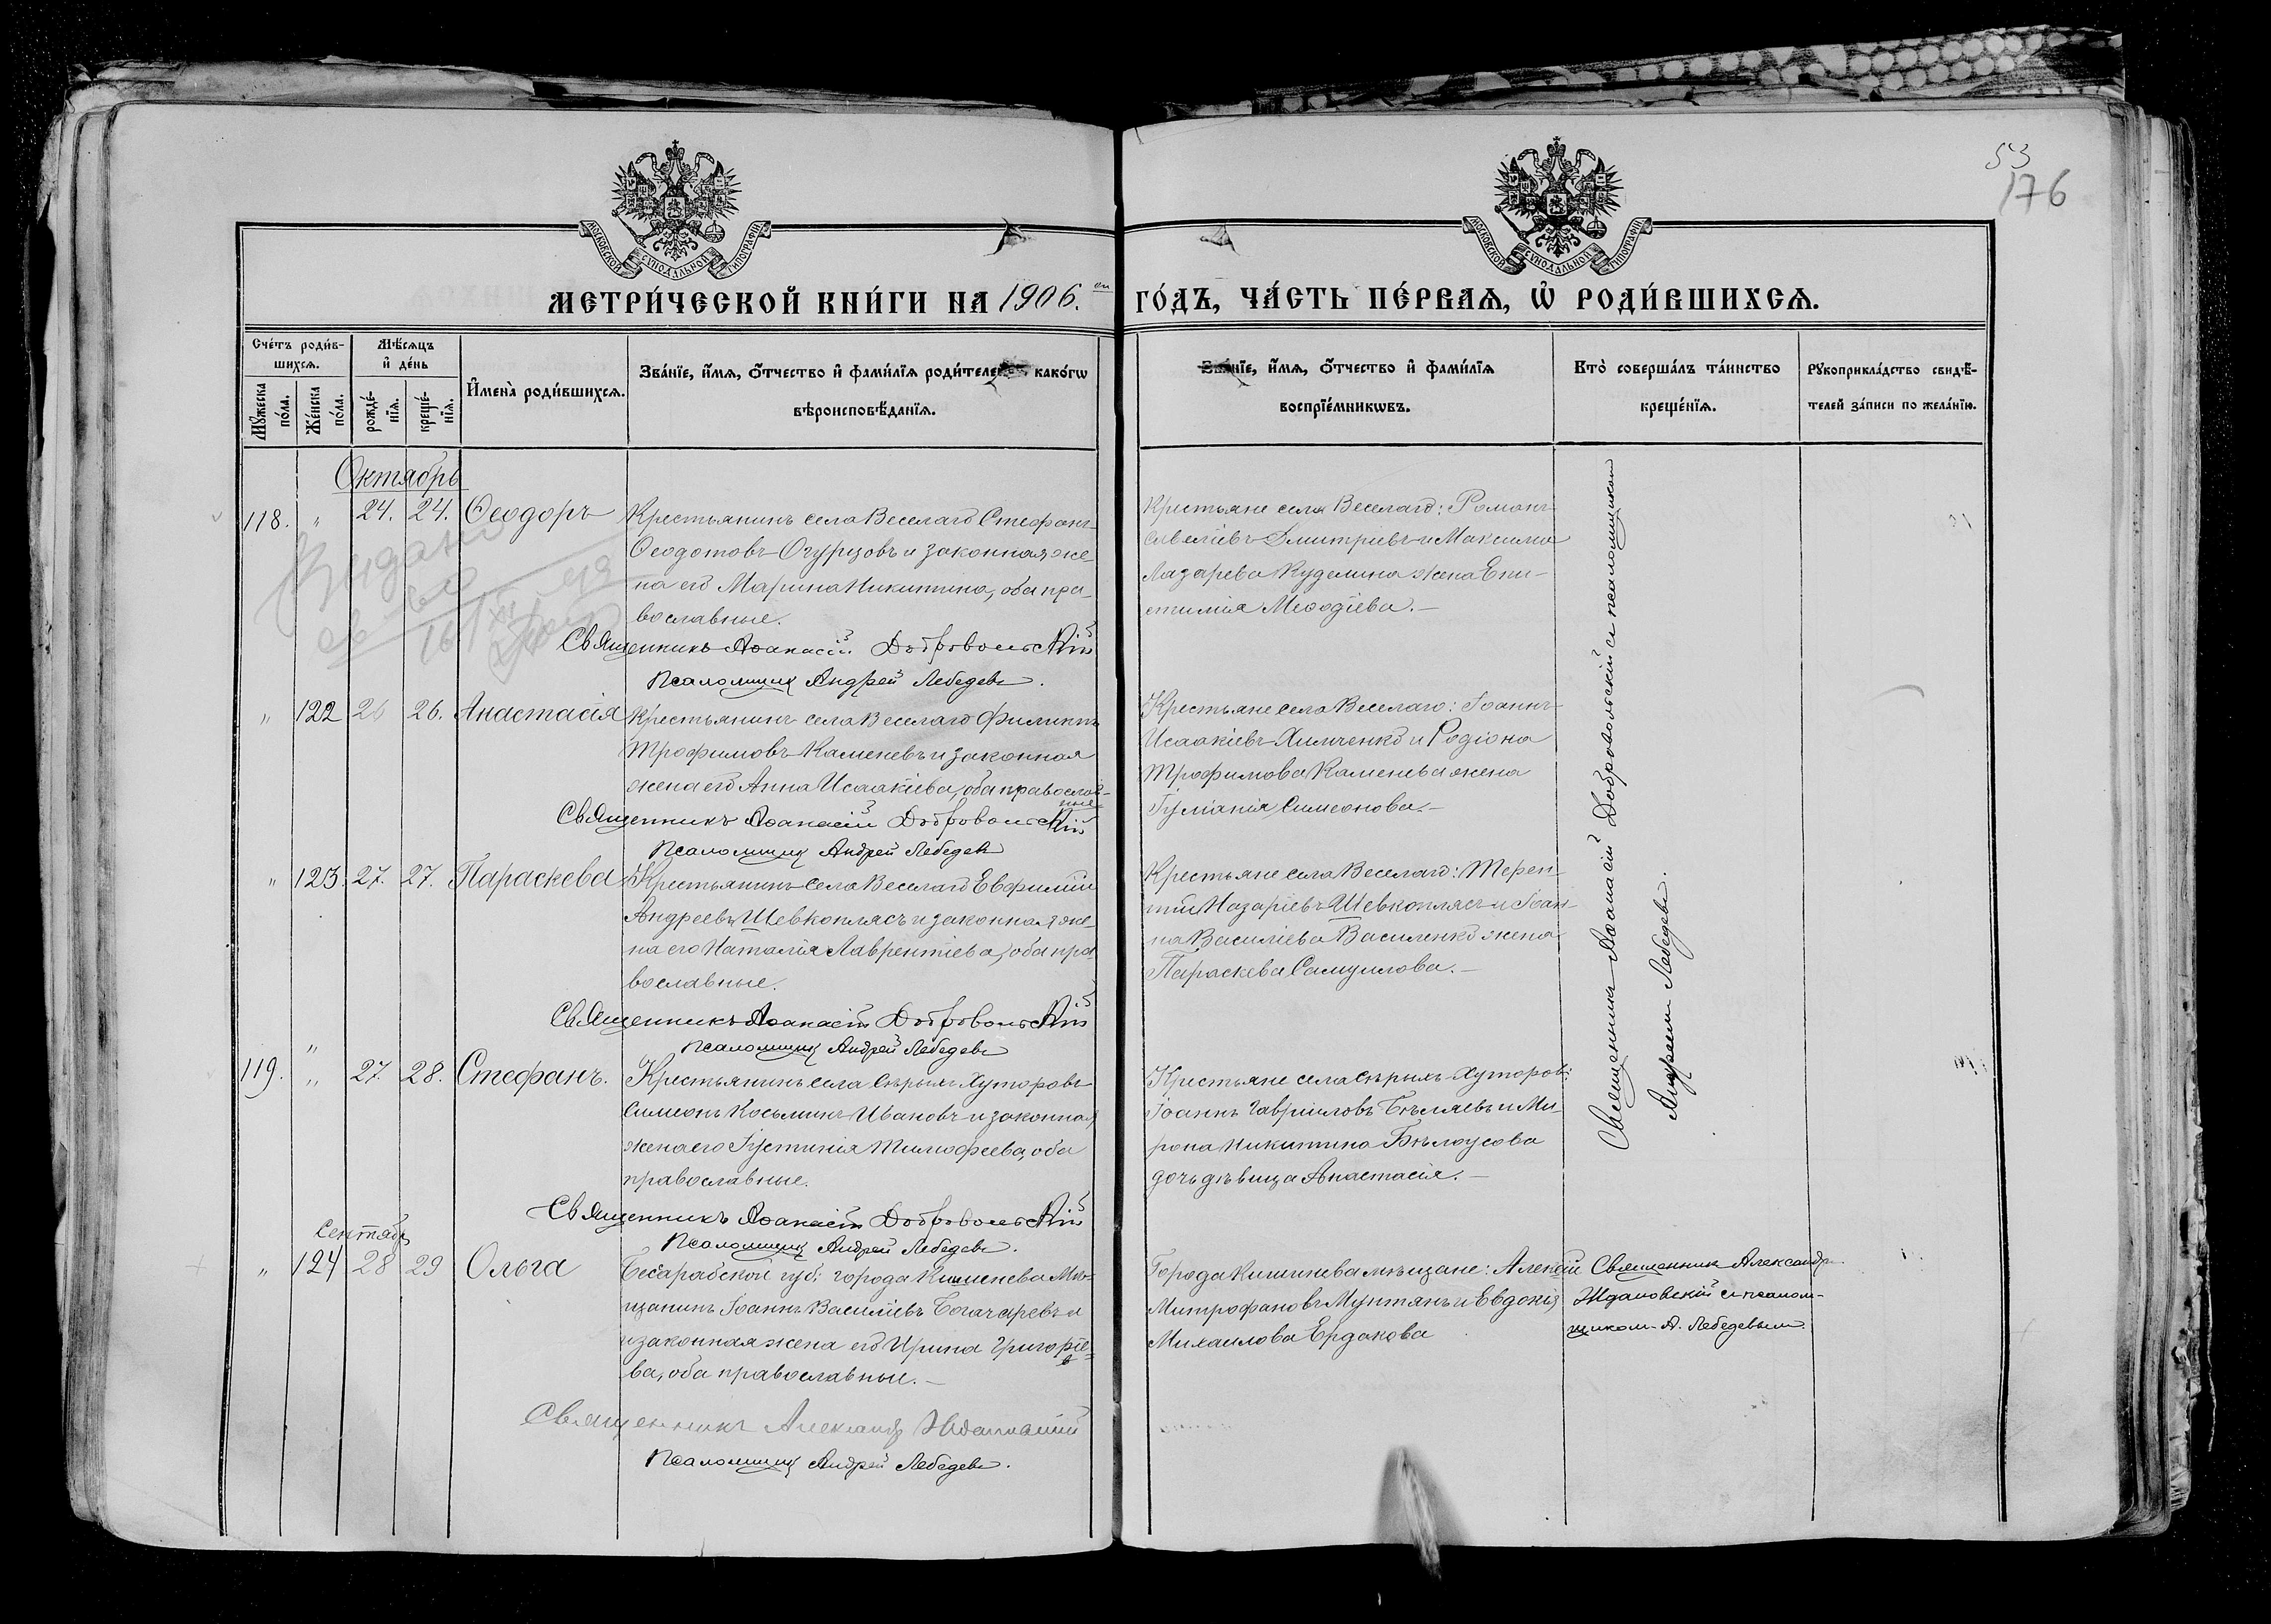 53
176
МОСКОВСКОЙ СѴНОДАЛЬНОЙ ТИПОГРАФІИ
МОСКОВСКОЙ СѴНОДАЛЬНОЙ ТИПОГРАФІИ
МЕТРИ́ЧЕСКОЙ КНИ́ГИ НА 1906. ГО́ДЪ, ЧА́СТЬ ПЕ́РВАЯ, Ѡ҆ РОДИ́ВШИХСЯ.
Сче́тъ роди́в-
шихся.
Мѣ́сяцъ
и҆ де́нь
Мꙋ́жеска
по́ла.
Же́нска
по́ла.
рожде́-
нїя.
креще́-
нїя.
И҆мена̀ роди́вшихся.
Зва́нїе, и҆́мя, ѻ҆́тчество и҆ фами́лїя роди́теле како́гѡ
вѣроисповѣ́данїя.
и҆́мя, ѻ҆́тчество и҆ фами́лїя
воспрїе́мникѡвъ.
Кто̀ соверша́лъ та́инство
креще́нїя.
Рꙋкоприкла́дство свидѣ́-
телей за́писи по жела́нїю.
Октябрь
118. " 24. 24. Ѳеодоръ
Крестьянинъ села Веселаго Стефанъ
Ѳеодотовъ Огурцовъ и законная же-
на его Марина Никитина, оба пра-
вославные.
Священникъ Аѳанасій Добровольскій
Псаломщик Андрей Лебедевъ.
Крестьяне села Веселаго: Романъ
Савеліевъ Дмитріевъ и Максима
Лазарева Куделина жена Епи-
стимія Меѳодіева.—
Выдано
" 122 26 26. Анастасія
Крестьянинъ села Веселаго Филиппъ
Трофимовъ Каменевъ и законная
жена его Анна Исаакіева, оба православ-
ные.
Священникъ Аѳанасій Добровольскій
Псаломщик Андрей Лебедевъ
Крестьяне села Веселаго: Іоаннъ
Исаакіевъ Химченко и Родіона
Трофимова Каменева жена
Іуліанія Симеонова.—
" 123. 27. 27. Параскева
Крестьянинъ села Веселаго Евфимій
Андреевъ Шевкоплясъ и законная же-
на его Наталія Лаврентіева, оба пра-
вославные.
Священникъ Аѳанасій Добровольскій
Псаломщик Андрей Лебедевъ
Крестьяне села Веселаго: Терен-
тій Назаріевъ Шевкоплясъ и Іоан-
на Василіева Василенко жена
Параскева Самуилова.—
119. " 27. 28. Стефанъ.
Крестьянинъ села Сѣрыхъ Хуторовъ
Симеонъ Косьминъ Ивановъ и законная
жена его Іустинія Тимофеева, оба
православные.
Священникъ Аѳанасій Добровольскій
Псаломщик Андрей Лебедевъ.
Крестьяне села Сѣрыхъ Хуторовъ:
Іоаннъ Гавріиловъ Бѣляевъ и Ми-
рона Никитина Бѣлоусова
дочь дѣвица Анастасія.—
Священникъ Аѳанасій Добровольскій съ псаломщикомъ
Андреем Лебедевым.
Сентябрь
" 124 28 29 Ольга
Бессарабской губ: города Кишенева Мѣ-
щанинъ Іоаннъ Василіевъ Богачаревъ и
и законная жена его Ирина Григоріе-
ва, оба православные.—
Священникъ Александр Ждановскій
Псаломщик Андрей Лебедевъ.
Города Кишинева мѣщане: Алексѣй
Митрофановъ Мунтянъ и Евдокія
Михаилова Ердакова
Священник Александр
Ждановскій с псалом-
щиком А. Лебедевым.